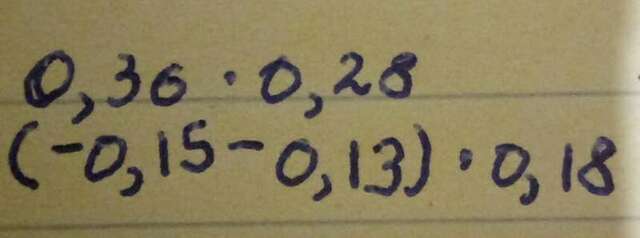 0,36 · 0,28
(-0,15-0,13) · 0,18